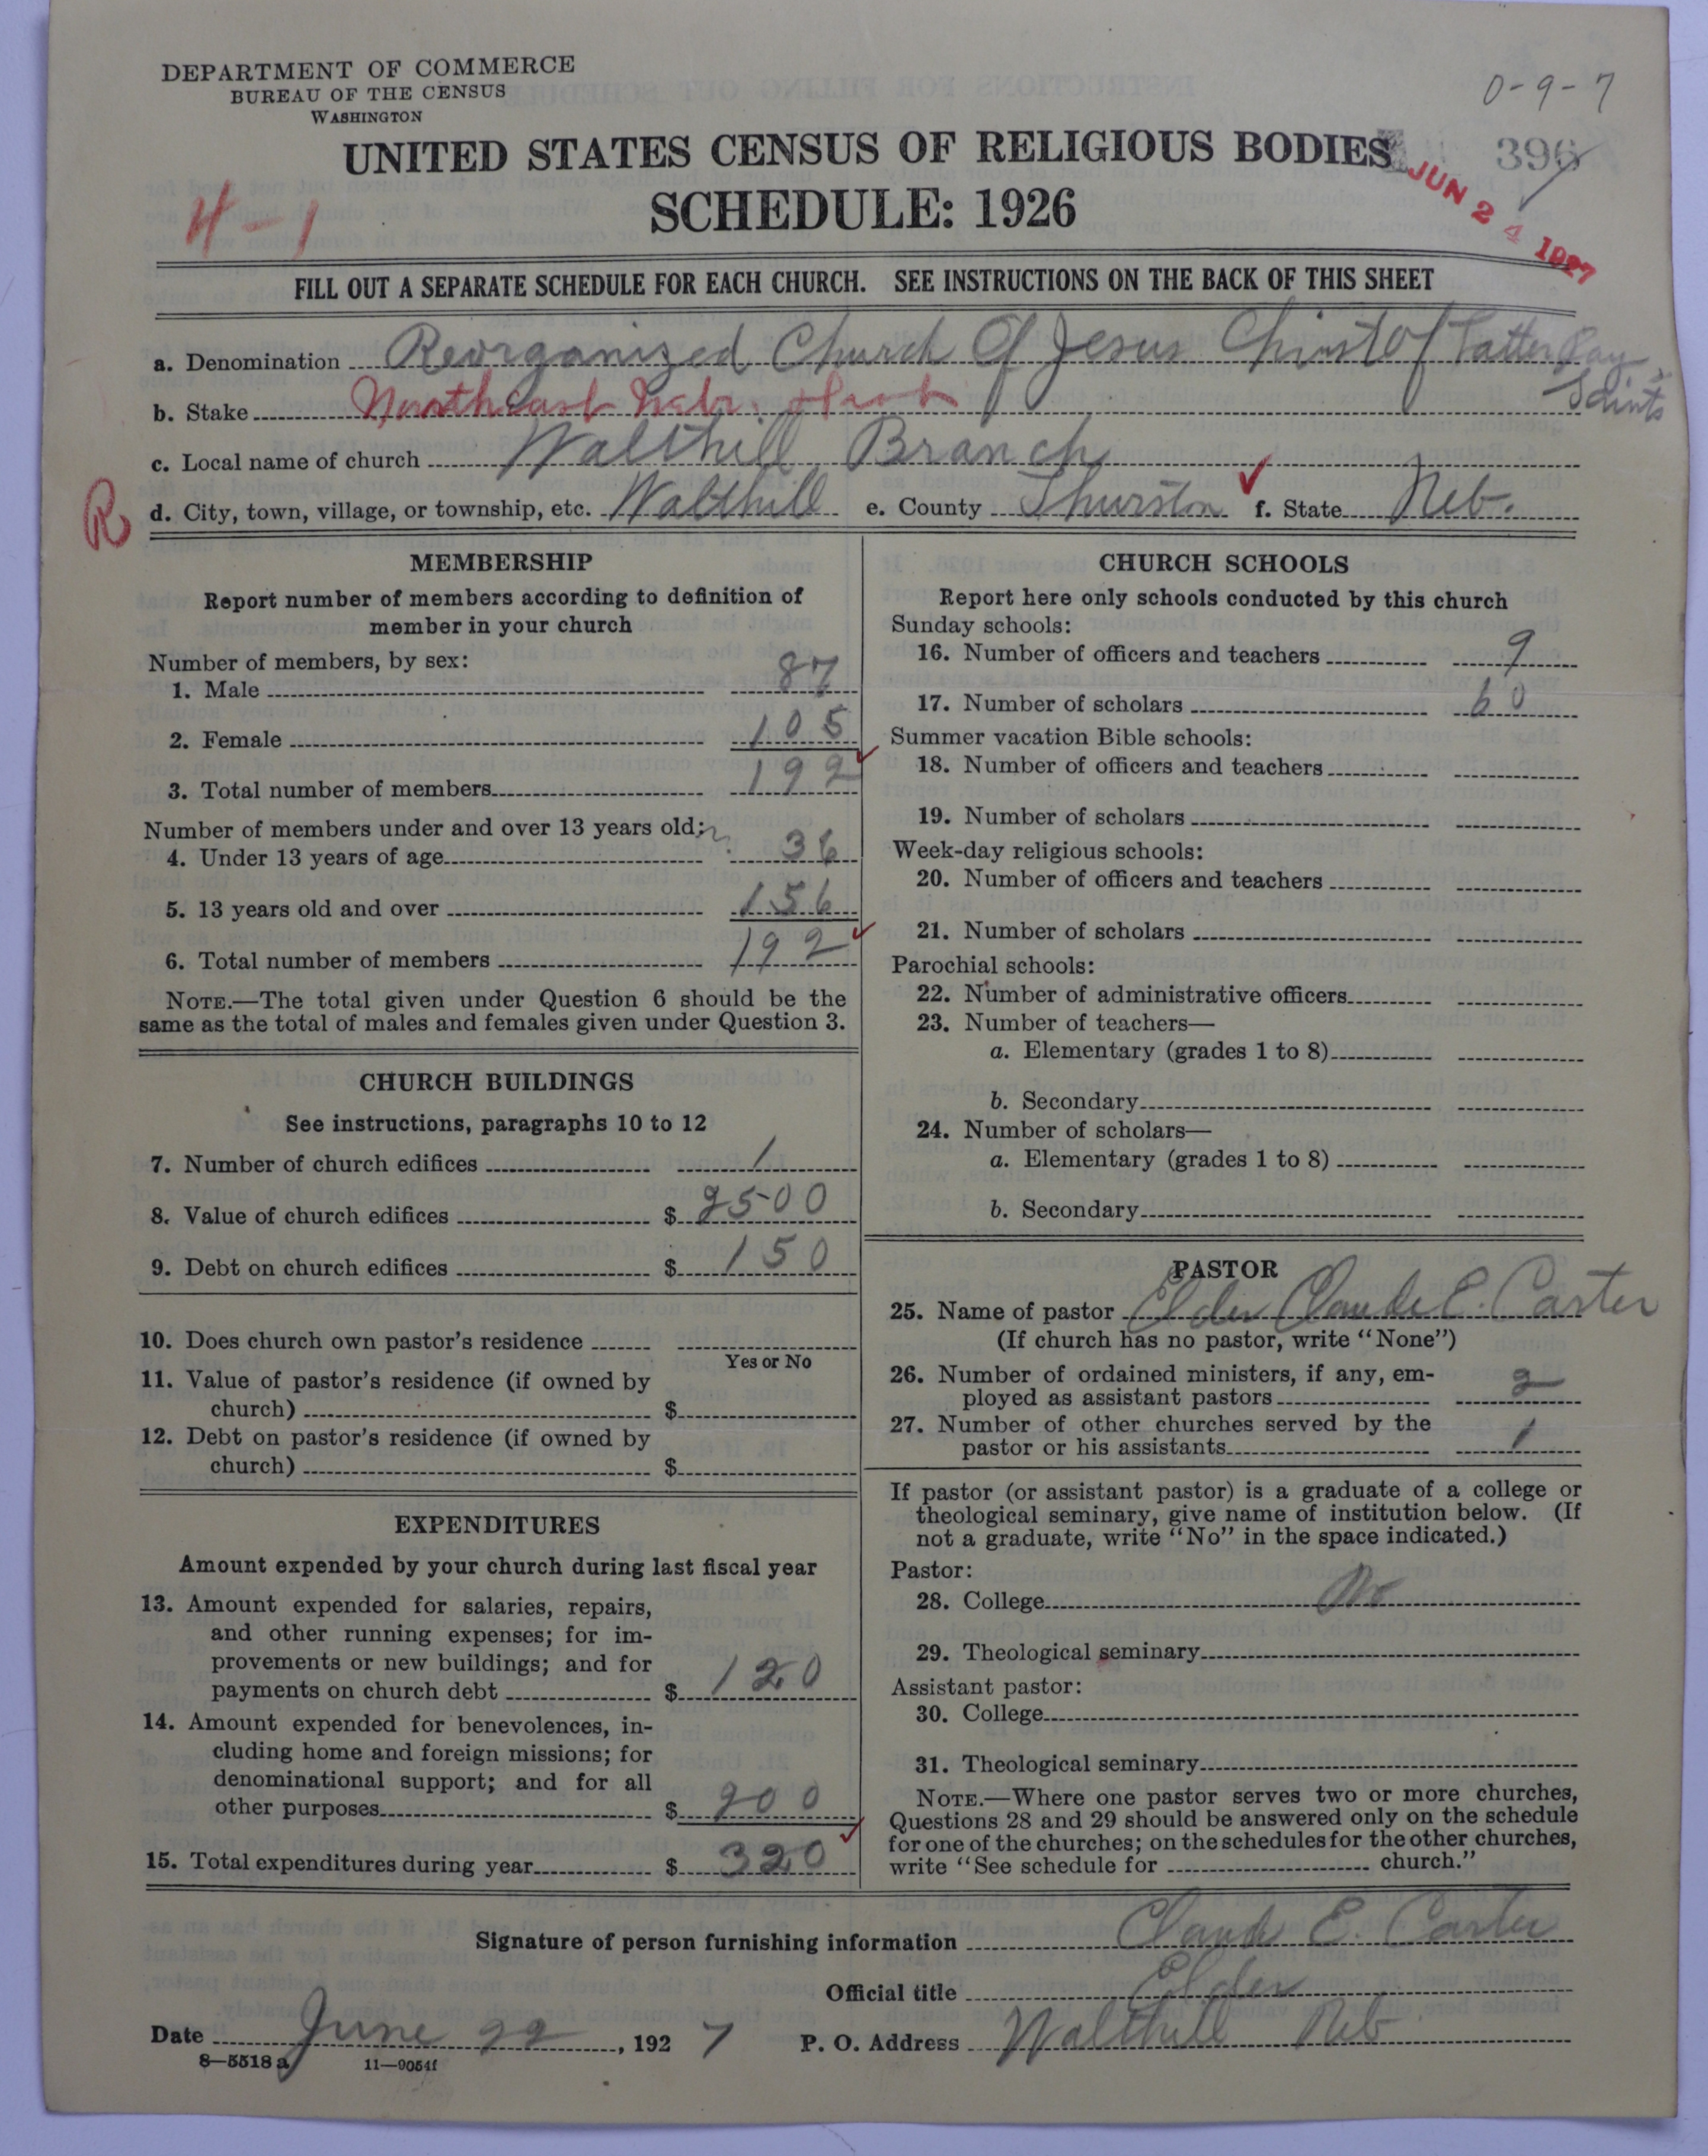 DEPARTMENT OF COMMERCE
BUREAU OF THE CENSUS
WASHINGTON
0-9-7
UNITED STATES CENSUS OF RELIGIOUS BODIES
396
JUN 24 1927
4-1
SCHEDULE: 1926
FILL OUT A SEPARATE SCHEDULE FOR EACH CHURCH. SEE INSTRUCTIONS ON THE BACK OF THIS SHEET
a. Denomination Reorganized Church Of Jesus Christ of Latter Day Saints
b. Stake Northeast Nebr. Dist
c. Local name of church Walthill Branch
R
d. City, town, village, or township, etc. Walthill e. County Thurston f. State Neb.
MEMBERSHIP
Report number of members according to definition of
member in your church
Number of members, by sex:
1. Male 87
2. Female 105
3. Total number of members 192
Number of members under and over 13 years old:
4. Under 13 years of age 36
5. 13 years old and over 156
6. Total number of members 192
NOTE.—The total given under Question 6 should be the
same as the total of males and females given under Question 3.
CHURCH BUILDINGS
See instructions, paragraphs 10 to 12
7. Number of church edifices 1
8. Value of church edifices $ 2500
9. Debt on church edifices $ 150
10. Does church own pastor's residence
Yes or No
11. Value of pastor's residence (if owned by
church) $
12. Debt on pastor's residence (if owned by
church) $
EXPENDITURES
Amount expended by your church during last fiscal year
13. Amount expended for salaries, repairs,
and other running expenses; for im-
provements or new buildings; and for
payments on church debt $ 120
14. Amount expended for benevolences, in-
cluding home and foreign missions; for
denominational support; and for all
other purposes $ 200
15. Total expenditures during year $ 320
CHURCH SCHOOLS
Report here only schools conducted by this church
Sunday schools:
16. Number of officers and teachers 9
17. Number of scholars 60
Summer vacation Bible schools:
18. Number of officers and teachers
19. Number of scholars
Week-day religious schools:
20. Number of officers and teachers
21. Number of scholars
Parochial schools:
22. Number of administrative officers
23. Number of teachers—
a. Elementary (grades 1 to 8)
b. Secondary
24. Number of scholars—
a. Elementary (grades 1 to 8)
b. Secondary
PASTOR
25. Name of pastor Elder Claude E. Carter
(If church has no pastor, write "None")
26. Number of ordained ministers, if any, em-
ployed as assistant pastors 2
27. Number of other churches served by the
pastor or his assistants 1
If pastor (or assistant pastor) is a graduate of a college or
theological seminary, give name of institution below. (If
not a graduate, write "No" in the space indicated.)
Pastor:
28. College No
29. Theological seminary
Assistant pastor:
30. College
31. Theological seminary
NOTE.—Where one pastor serves two or more churches,
Questions 28 and 29 should be answered only on the schedule
for one of the churches; on the schedules for the other churches,
write "See schedule for church."
Signature of person furnishing information Claude E. Carter
Official title Elder
Date June 22, 1927 P. O. Address Walthill Neb
8—5518a 11—9054f